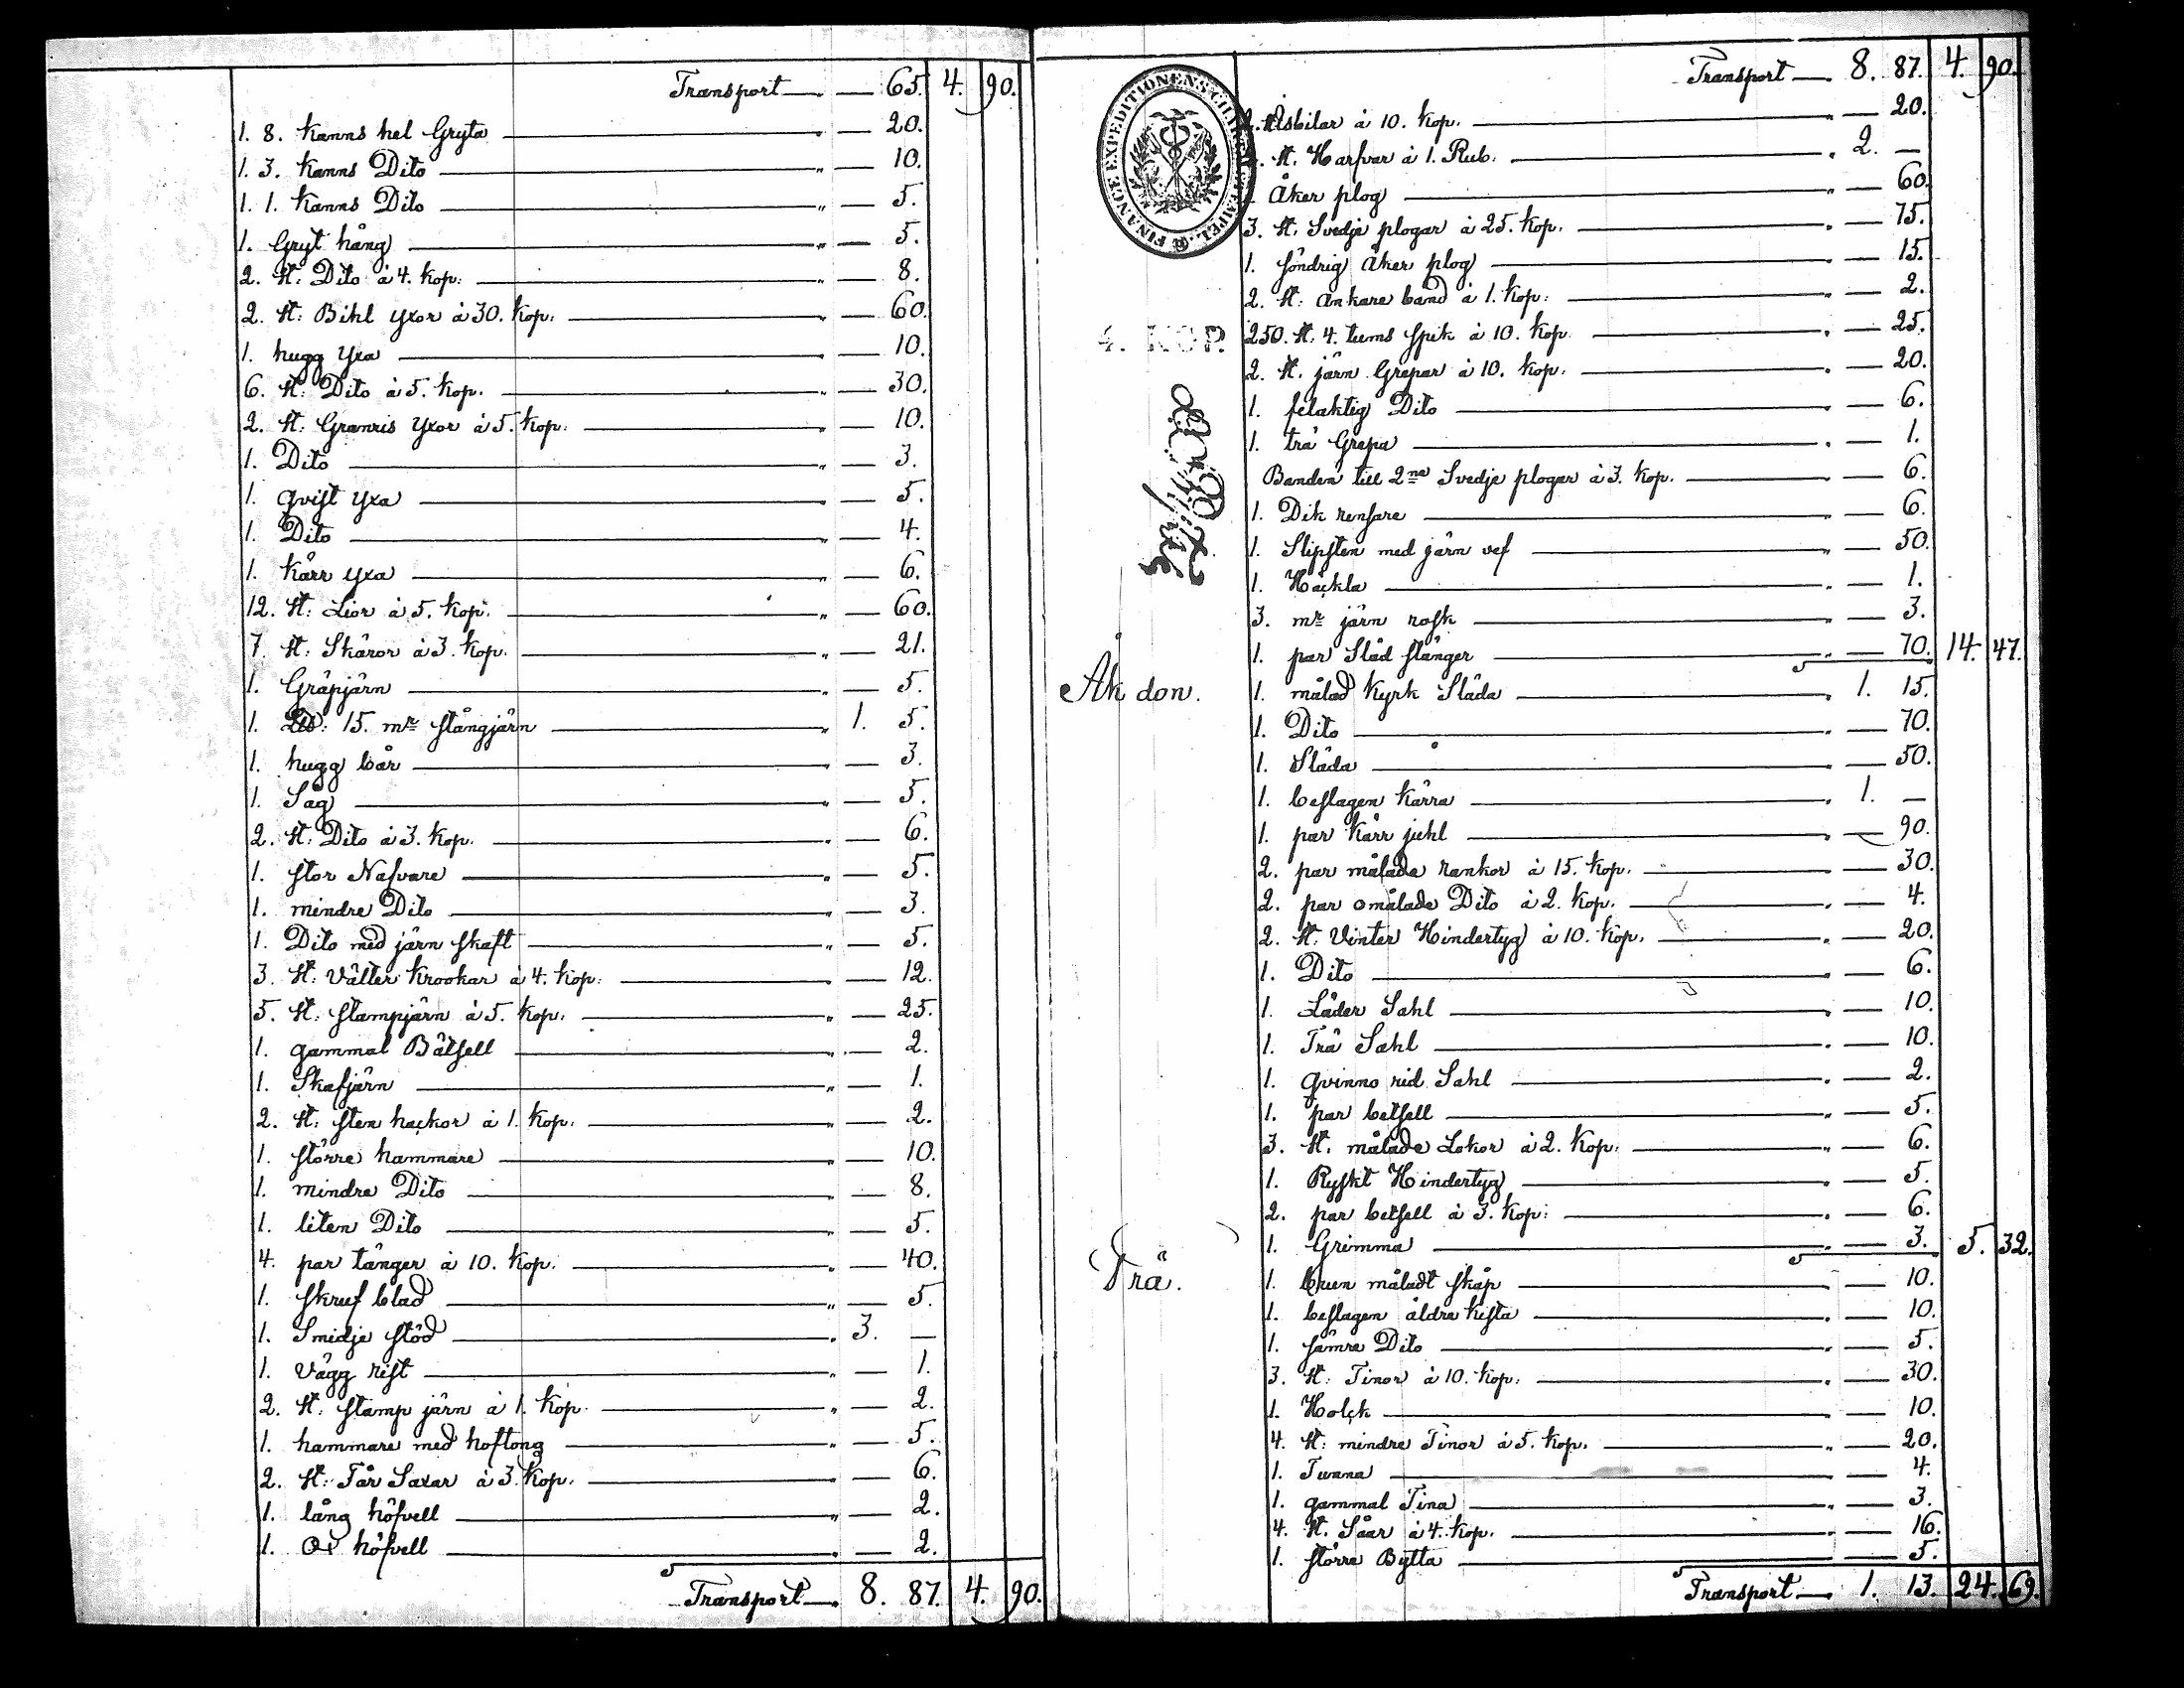 Transport — — 65. 4. 90.
1. 8. kanns hel Gryta — „ — 20.
1. 3. kanns Dito — „ — 10.
1. 1. kanns Dito — „ — 5.
1. Gryt häng — „ — 5.
2. st: Dito à 4. kop: — „ — 8.
2. st: Bihl yxor à 30. kop. — „ — 60.
1. hugg yxa — „ — 10.
6. st: Dito à 5. kop. — „ — 30.
2. st: Granris yxor à 5. kop: — „ — 10.
1. Dito — „ — 3.
1. qvist yxa — „ — 5.
1. Dito — „ — 4.
1. kärr yxa — „ — 6.
12. st: Lior à 5. kop: — „ — 60.
7. st: Skäror à 3. kop. — „ — 21.
1. Gräpjärn — „ — 5.
1. 15. mr stångjärn — „ 1. 5.
1. hugg bår — „ — 3.
1. Såg — „ — 5.
2. st: Dito à 3. kop. — „ — 6.
1. stor Nafvare — „ — 5.
1. mindre Dito — „ — 3.
1. Dito med järn skaft — „ — 5.
3. st: Välter krookar à 4. kop: — „ — 12.
5. st: stampjärn à 5. kop. — „ — 25.
1. gammal Bätsell — „ — 2.
1. Skafjärn — „ — 1.
2. st: sten hackor à 1. kop. — „ — 2.
1. större hammare — „ — 10.
1. mindre Dito — „ — 8.
1. liten Dito — „ — 5.
4. par tänger à 10. kop. — „ — 40.
1. skruf blad — „ — 5.
1. Smidje städ — „ 3. —
1. vägg rist — „ — 1.
2. st: stamp järn à 1. kop. — „ — 2.
1. hammare med hoftong — „ — 5.
2. st: Får Saxar à 3. kop. — „ — 6.
1. lång höfvell — „ — 2.
1. Ox höfvell — „ — 2.
Transport — 8. 87. 4. 90.
FINANCE EXPEDITIONENS CHARTA STEMPEL
4. KOP.
Transport — 8. 87. 4. 90.
2. Åsbilar à 10. kop. — „ — 20.
st. Harfvar à 1. Rub. — „ 2. —
Åker plog — „ — 60.
3. st. Svedje plogar à 25. kop. — „ — 75.
1. söndrig åker plog — „ — 15.
2. st: ankare band à 1. kop: — „ — 2.
250. st. 4. tums spik à 10. kop. — „ — 25.
2. st. järn Grepar à 10. kop. — „ — 20.
1. felaktig Dito — „ — 6.
1. trä Grepa — „ — 1.
Banden till 2ne Svedje plogar à 3. kop. — „ — 6.
1. Dik rensare — „ — 6.
1. Slipsten med järn vef — „ — 50.
1. Häckla — „ — 1.
3. mr järn rosk — „ — 3.
1. par Släd stänger — „ — 70. 14. 47.
Åk don.
1. målad kyrk Släda — „ 1. 15.
1. Dito — „ — 70.
1. Släda — „ — 50.
1. beslagen kärra — „ 1. —
1. par kärr juhl — „ — 90.
2. par målade rankor à 15. kop. — „ — 30.
2. par omålade Dito à 2. kop. — „ — 4.
2. st: Vinter Hindertyg à 10. kop. — „ — 20.
1. Dito — „ — 6.
1. Läder Sahl — „ — 10.
1. Trä Sahl — „ — 10.
1. qvinno rid Sahl — „ — 2.
1. par betsell — „ — 5.
3. st. målade Lokor à 2. kop: — „ — 6.
1. Ryskt Hindertyg — „ — 5.
2. par betsell à 3. kop: — „ — 6.
1. Grimma — „ — 3. 5. 32.
Trä.
1. brun måladt skåp — „ — 10.
1. beslagen äldre kista — „ — 10.
1. sämre Dito — „ — 5.
3. st: Tinor à 10. kop. — „ — 30.
1. Holck — „ — 10.
4. st: mindre Tinor à 5. kop. — „ — 20.
1. Tunna — „ — 4.
1. gammal Tina — „ — 3.
4. st. Såar à 4. kop. — „ — 16.
1. större Bytta — 5.
Transport — 1. 13. 24. 69.